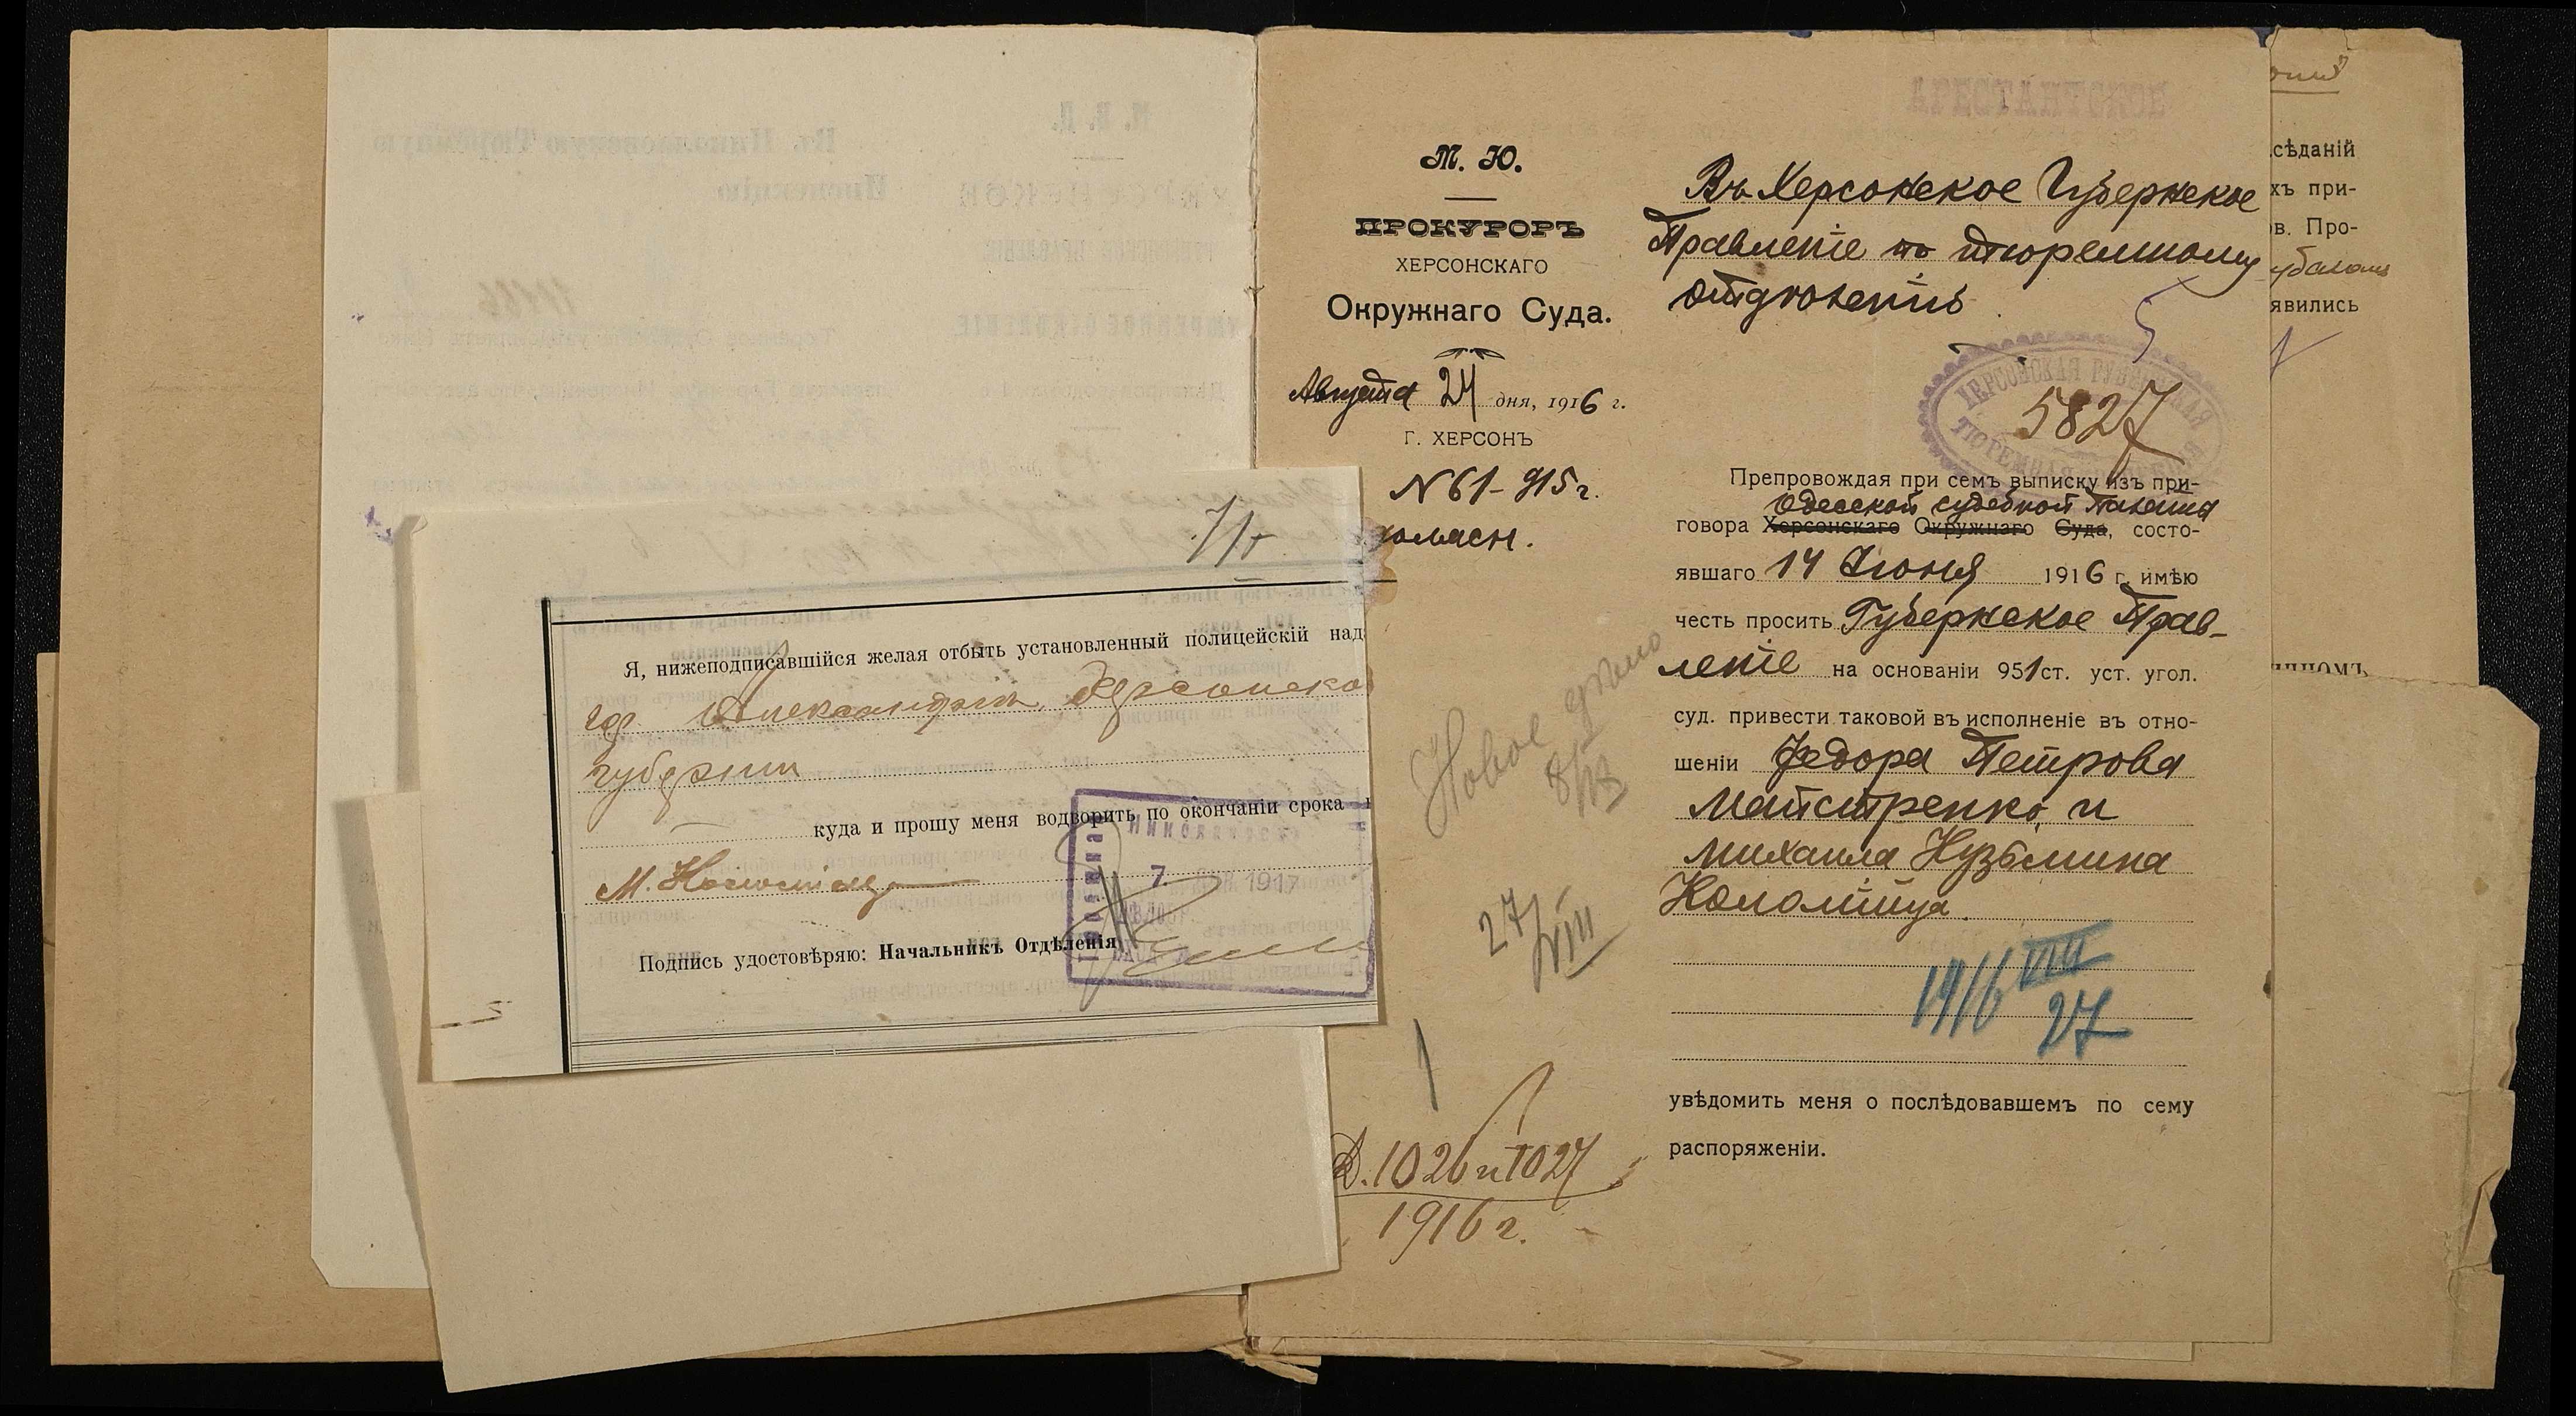 Я, нижеподписавшійся желая отбыть установленный полицейскій над
гор. Александріи, Херсонской
губерніи
куда и прошу меня водворить по окончаніи срока
М. Коломіецъ
7. 1917
Подпись удостовѣряю: Начальникъ Отдѣленія
АРЕСТАНТСКОЕ
М. Ю.
ПРОКУРОРЪ
ХЕРСОНСКАГО
Окружнаго Суда.
Августа 24 дня, 1916 г.
Г. ХЕРСОНЪ
№ 61-915 г.
Новое дѣло
27/VIII
Д. 1026 и 1027
1916 г.
Въ Херсонское Губернское
Правленіе по тюремному
отдѣленію
ХЕРСОНСКАЯ ГУБЕРНСКАЯ
ТЮРЕМНАЯ
5827
Препровождая при семъ выписку изъ при-
Одесской судебной Палаты
говора Херсонскаго Окружнаго Суда, состо-
явшаго 14 Іюня 1916 г. имѣю
честь просить Губернское Прав-
леніе на основаніи 951 ст. уст. угол.
суд. привести таковой въ исполненіе въ отно-
шеніи Федора Петрова
Майстренко и
Михаила Кузьмина
Коломійца.
1916 VIII
27
увѣдомить меня о послѣдовавшемъ по сему
распоряженіи.
сѣданій
хъ при-
ов. Про-
явились